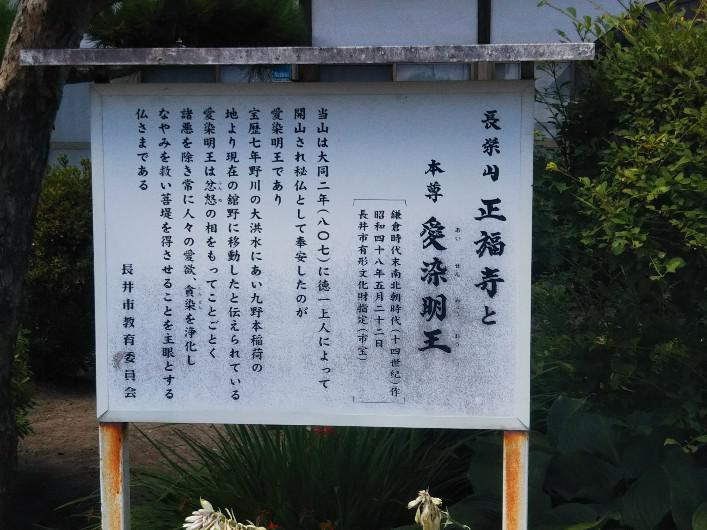 長栄山 正福寺と
本尊 愛染明王
あい ぜん みょう おう
鎌倉時代末南北朝時代(十四世紀)作
昭和四十八年五月二十二日
長井市有形文化財指定(市宝)
当山は大同二年(八〇七)に徳一上人によって
開山され秘仏として奉安したのが
愛染明王であり
宝歴七年野川の大洪水にあい九野本稲荷の
地より現在の舘野に移動したと伝えられている
愛染明王は忿怒の相をもってことごとく
諸悪を除き常に人々の愛欲、貪染を浄化し
なやみを救い菩提を得させることを主眼とする
仏さまである
長井市教育委員会